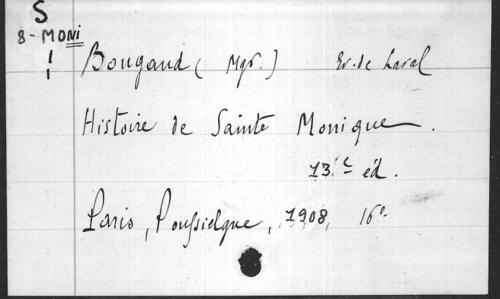 S
8-MONI
Bougaud (Mgr.) Ev. de Laval
Histoire de Sainte Monique.
13e éd.
Paris, Poussielgue, 1908, 16°